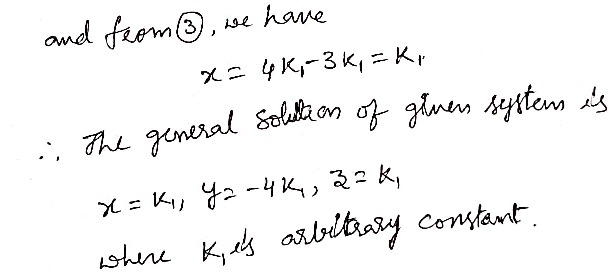 and from ③, we have
x = 4K₁-3K₁ = K₁
∴ The general solution of given system is
x = K₁, y = -4K₁, z = K₁
where K₁ is arbitrary constant.